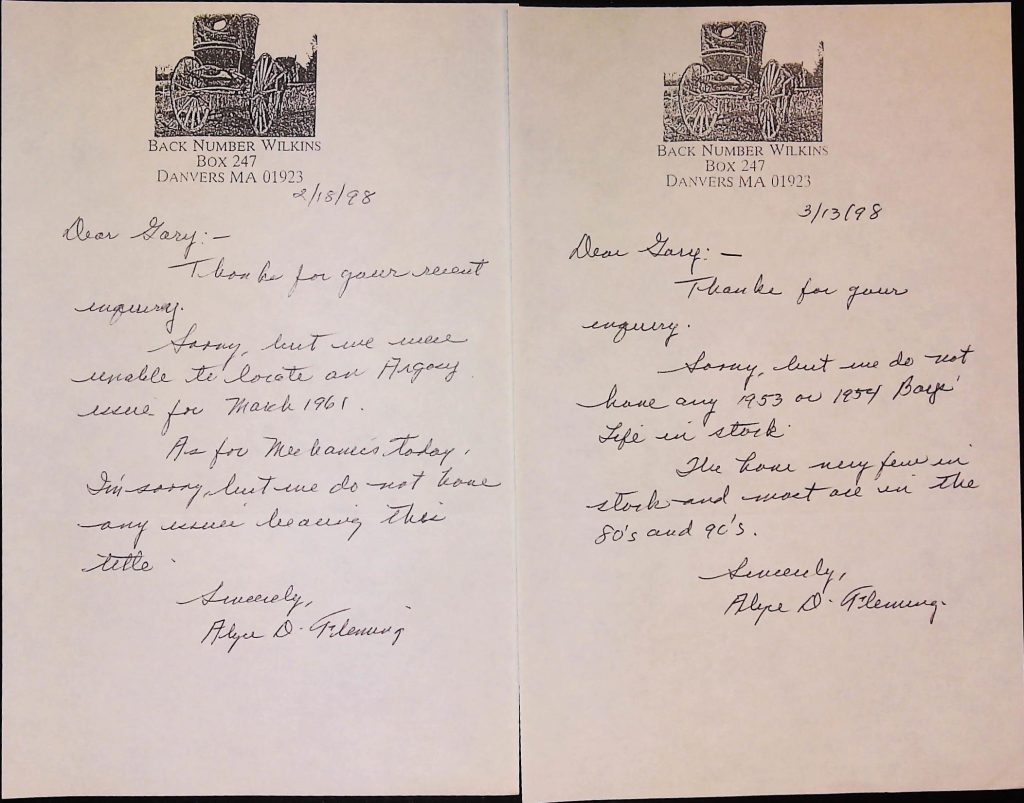 BACK NUMBER WILKINS
BOX 247
DANVERS MA 01923
2/18/98
Dear Gary:-
Thanks for your recent
inquiry.
Sorry, but we were
unable to locate an Argosy
issue for March 1961.
As for Mechanics today,
I'm sorry, but we do not have
any issues bearing this
title.
Sincerely,
Alyce D. Fleming
BACK NUMBER WILKINS
BOX 247
DANVERS MA 01923
3/13/98
Dear Gary:-
Thanks for your
inquiry.
Sorry, but we do not
have any 1953 or 1954 Boys'
Life in stock.
We have very few in
stock and most are in the
80's and 90's.
Sincerely,
Alyce D. Fleming.